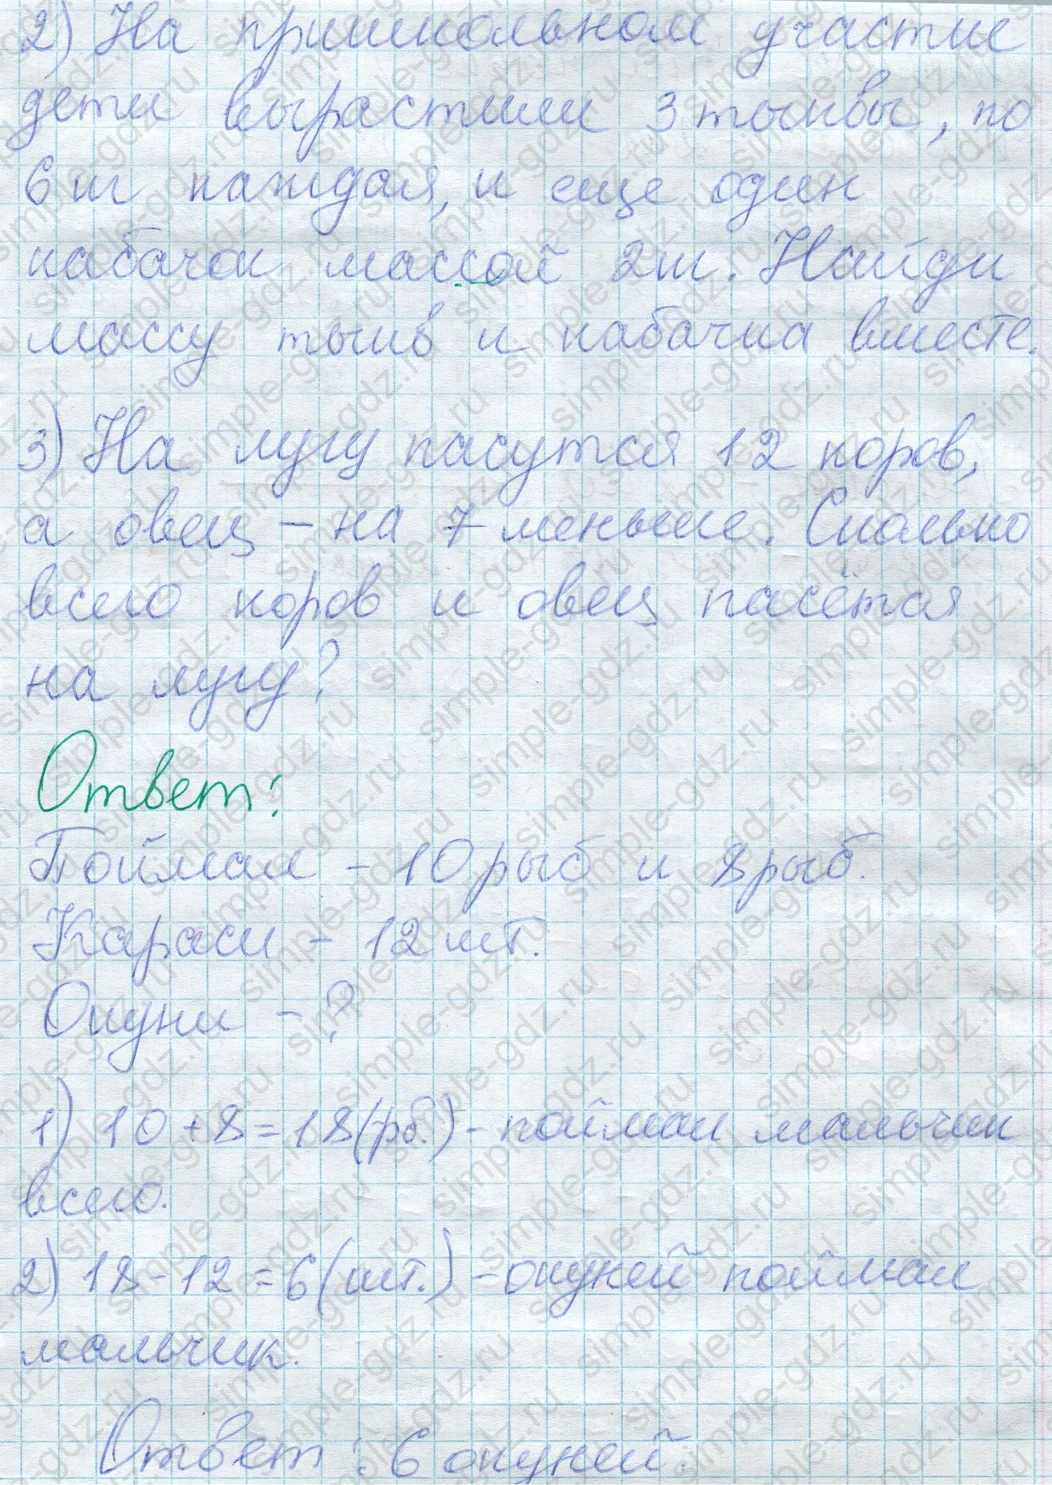 2) На пришкольном участке
дети вырастили 3 тыквы, по
6 ш каждая, и еще один
кабачок массой 2ш. Найди
массу тыкв и кабачка вместе.
3) На лугу пасутся 12 коров,
а овец – на 7 меньше. Сколько
всего коров и овец пасётся
на лугу?
Ответ:
Поймал – 10 рыб и 8 рыб.
Караси – 12 шт.
Окуни – ?
1) 10 + 8 = 18 (рб.) – поймал мальчик
всего.
2) 18 – 12 = 6 (шт.) – окуней поймал
мальчик.
Ответ: 6 окуней.
simple-gdz.ru